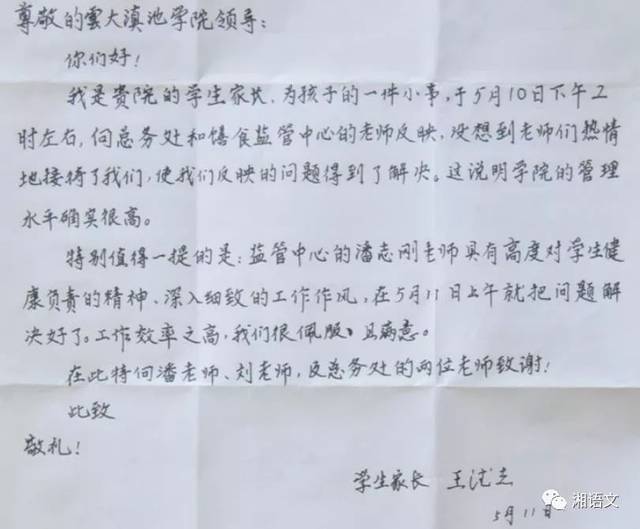 尊敬的雲大滇池学院领导：
你们好！
我是贵院的学生家长，为孩子的一件小事，于5月10日下午
时左右，向总务处和膳食监管中心的老师反映，没想到老师们热情
地接待了我们，使我们反映的问题得到了解决。这说明学院的管理
水平确实很高。
特别值得一提的是：监管中心的潘志刚老师具有高度对学生健
康负责的精神、深入细致的工作作风，在5月11日上午就把问题解
决好了。工作效率之高，我们很佩服、且满意。
在此特向潘老师、刘老师，及总务处的两位老师致谢！
此致
敬礼！
学生家长 王
5月11日
湘语文